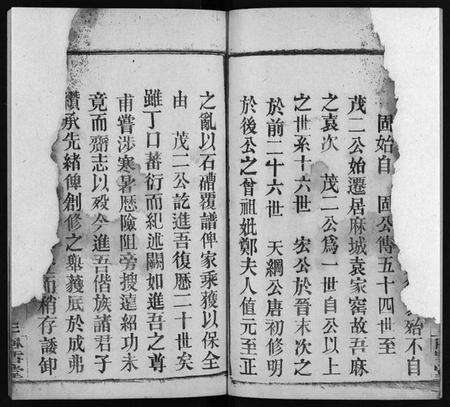 始不自
固始自　固公傳五十四世至
茂二公始遷居麻城袁家窰故吾麻
之袁次　茂二公爲一世自公以上
之世系十六世　宏公於晉末次之
於前二十六世　天綱公唐初修明
於後公之曾祖妣鄭夫人值元至正
之亂以石磚覆譜俾家乘獲以保全
由　茂二公訖進吾復歷二十世矣
雖丁口蕃衍而紀述闕如進吾之尊
甫嘗涉寒暑歷險阻旁搜遠紹功未
竟而齎志以歿今進吾偕族諸君子
纘承先緒俾創修之舉蕆厎於成弗
而稍存諉卸